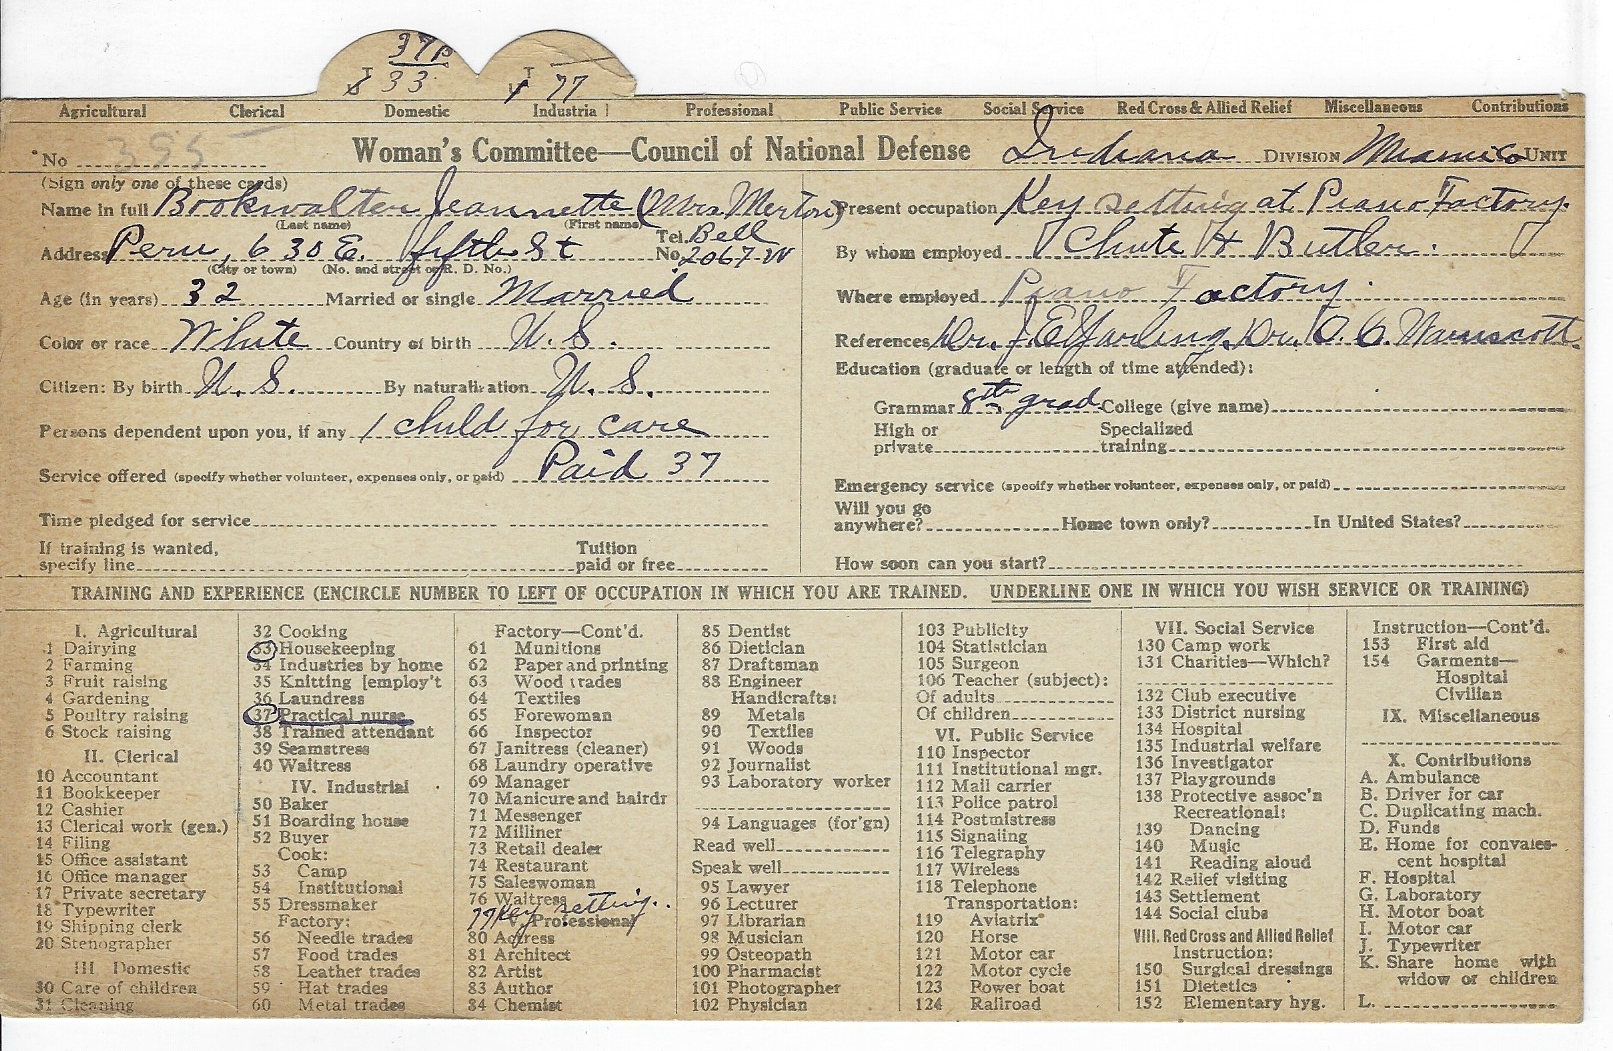 37P
T 33
T 77
Agricultural Clerical Domestic Industrial Professional Public Service Social Service Red Cross & Allied Relief Miscellaneous Contributions
No 395 Woman's Committee—Council of National Defense Indiana DIVISION Miami Co UNIT
(Sign only one of these cards)
Name in full Bookwalter Jeannette (Mrs. Merton)
(Last name) (First name)
Address Peru, 630 E. fifth St Tel. No. Bell 2067 W
(City or town) (No. and street or R. D. No.)
Age (in years) 32 Married or single Married
Color or race White Country of birth U. S.
Citizen: By birth U. S. By naturalization U. S.
Persons dependent upon you, if any 1 child for care
Service offered (specify whether volunteer, expenses only, or paid) Paid 37
Time pledged for service
If training is wanted, specify line Tuition paid or free
Present occupation Key setting at Piano Factory.
By whom employed Chute & Butler.
Where employed Piano Factory.
References Dr. J. E. Yarling, Dr. O. C. Wainscott.
Education (graduate or length of time attended):
Grammar 8th grad College (give name)
High or private Specialized training
Emergency service (specify whether volunteer, expenses only, or paid)
Will you go anywhere? Home town only? In United States?
How soon can you start?
TRAINING AND EXPERIENCE (ENCIRCLE NUMBER TO LEFT OF OCCUPATION IN WHICH YOU ARE TRAINED. UNDERLINE ONE IN WHICH YOU WISH SERVICE OR TRAINING)
I. Agricultural
1 Dairying
2 Farming
3 Fruit raising
4 Gardening
5 Poultry raising
6 Stock raising
II. Clerical
10 Accountant
11 Bookkeeper
12 Cashier
13 Clerical work (gen.)
14 Filing
15 Office assistant
16 Office manager
17 Private secretary
18 Typewriter
19 Shipping clerk
20 Stenographer
III Domestic
30 Care of children
31 Cleaning
32 Cooking
33 Housekeeping
34 Industries by home
35 Knitting [employ't
36 Laundress
37 Practical nurse
38 Trained attendant
39 Seamstress
40 Waitress
IV. Industrial
50 Baker
51 Boarding house
52 Buyer
Cook:
53 Camp
54 Institutional
55 Dressmaker
Factory:
56 Needle trades
57 Food trades
58 Leather trades
59 Hat trades
60 Metal trades
Factory—Cont'd.
61 Munitions
62 Paper and printing
63 Wood trades
64 Textiles
65 Forewoman
66 Inspector
67 Janitress (cleaner)
68 Laundry operative
69 Manager
70 Manicure and hairdr
71 Messenger
72 Milliner
73 Retail dealer
74 Restaurant
75 Saleswoman
76 Waitress
77 Key setting.
V. Professional
80 Actress
81 Architect
82 Artist
83 Author
84 Chemist
85 Dentist
86 Dietician
87 Draftsman
88 Engineer
Handicrafts:
89 Metals
90 Textiles
91 Woods
92 Journalist
93 Laboratory worker
94 Languages (for'gn)
Read well
Speak well
95 Lawyer
96 Lecturer
97 Librarian
98 Musician
99 Osteopath
100 Pharmacist
101 Photographer
102 Physician
103 Publicity
104 Statistician
105 Surgeon
106 Teacher (subject):
Of adults
Of children
VI. Public Service
110 Inspector
111 Institutional mgr.
112 Mail carrier
113 Police patrol
114 Postmistress
115 Signaling
116 Telegraphy
117 Wireless
118 Telephone
Transportation:
119 Aviatrix
120 Horse
121 Motor car
122 Motor cycle
123 Power boat
124 Railroad
VII. Social Service
130 Camp work
131 Charities—Which?
132 Club executive
133 District nursing
134 Hospital
135 Industrial welfare
136 Investigator
137 Playgrounds
138 Protective assoc'n
Recreational:
139 Dancing
140 Music
141 Reading aloud
142 Relief visiting
143 Settlement
144 Social clubs
VIII. Red Cross and Allied Relief
Instruction:
150 Surgical dressings
151 Dietetics
152 Elementary hyg.
Instruction—Cont'd.
153 First aid
154 Garments—
Hospital
Civilian
IX. Miscellaneous
X. Contributions
A. Ambulance
B. Driver for car
C. Duplicating mach.
D. Funds
E. Home for convales-
cent hospital
F. Hospital
G. Laboratory
H. Motor boat
I. Motor car
J. Typewriter
K. Share home with
widow or children
L.